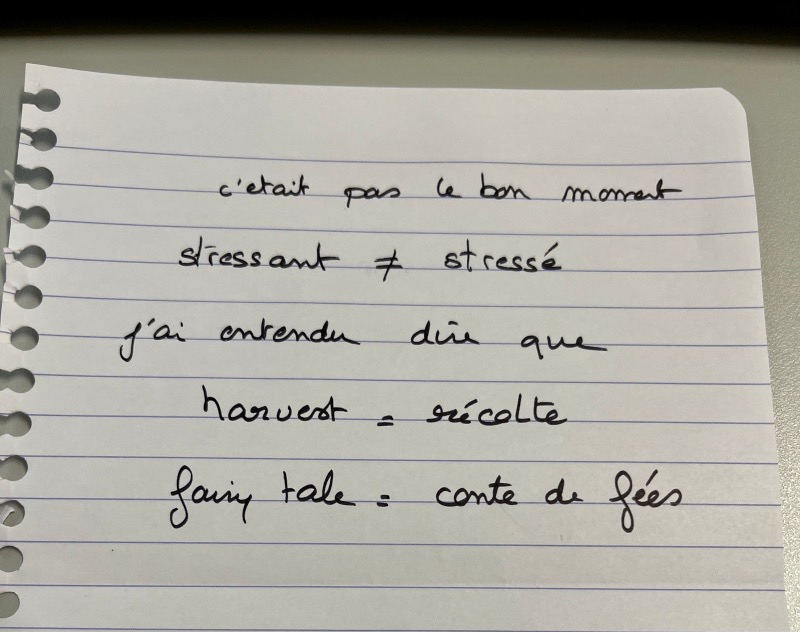 c'etait pas le bon moment
stressant ≠ stressé
j'ai entendu dire que
harvest = récolte
fairy tale = conte de fées